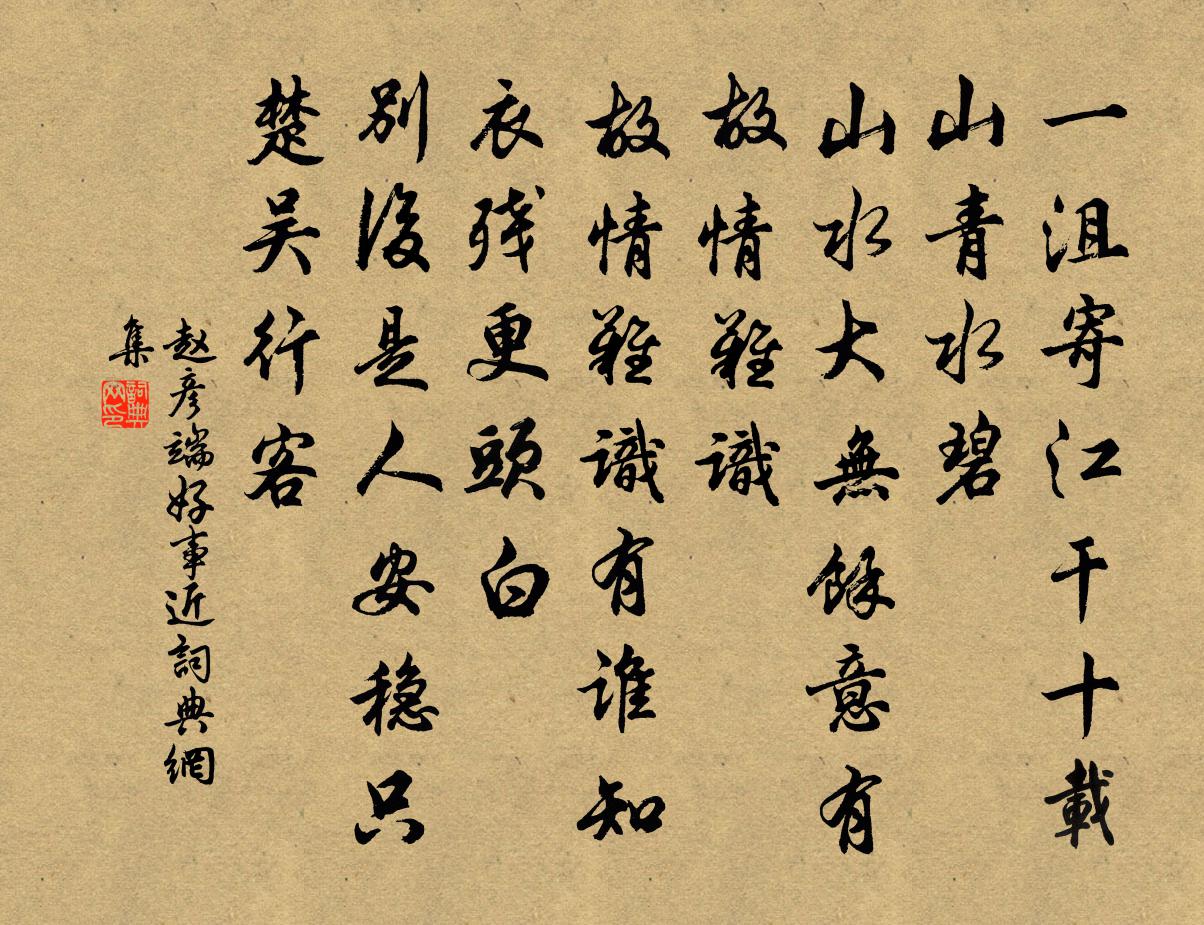 一沮寄江干十載
山青水碧
山水大無餘意有
故情難識
故情難識有誰知
衣残更頭白
別後是人安穏只
楚吴行客
赵彦端好事近詞典網
集
詞典網印